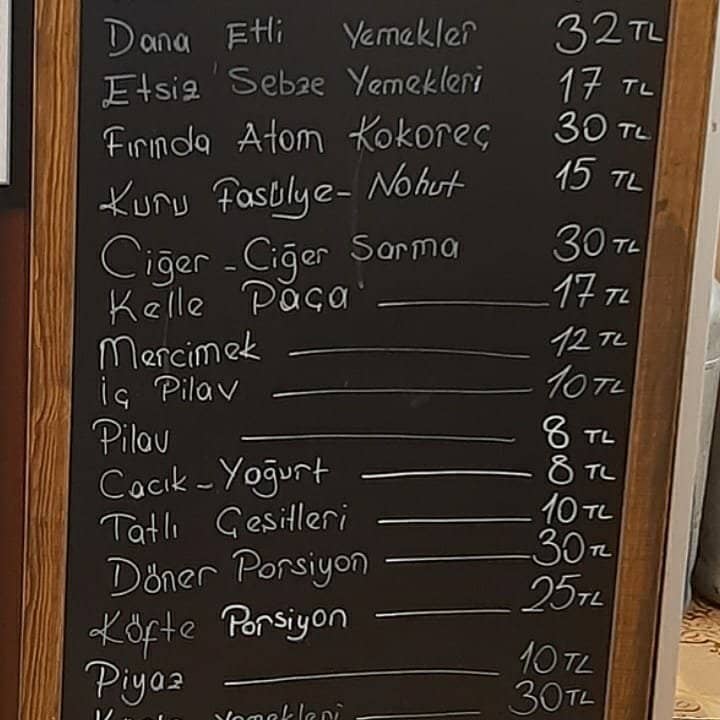 Dana Etli Yemekler 32 TL
Etsiz Sebze Yemekleri 17 TL
Fırında Atom Kokoreç 30 TL
Kuru Fasülye - Nohut 15 TL
Ciğer - Ciğer Sarma 30 TL
Kelle Paça 17 TL
Mercimek 12 TL
İç Pilav 10 TL
Pilav 8 TL
Cacık - Yoğurt 8 TL
Tatlı Çeşitleri 10 TL
Döner Porsiyon 30 TL
Köfte Porsiyon 25 TL
Piyaz 10 TL
yemekleri 30 TL